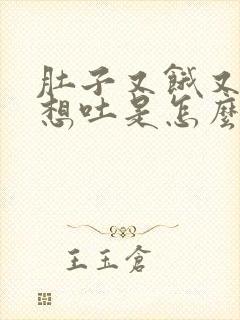 肚子又餓又
想吐是怎麼
王玉倉